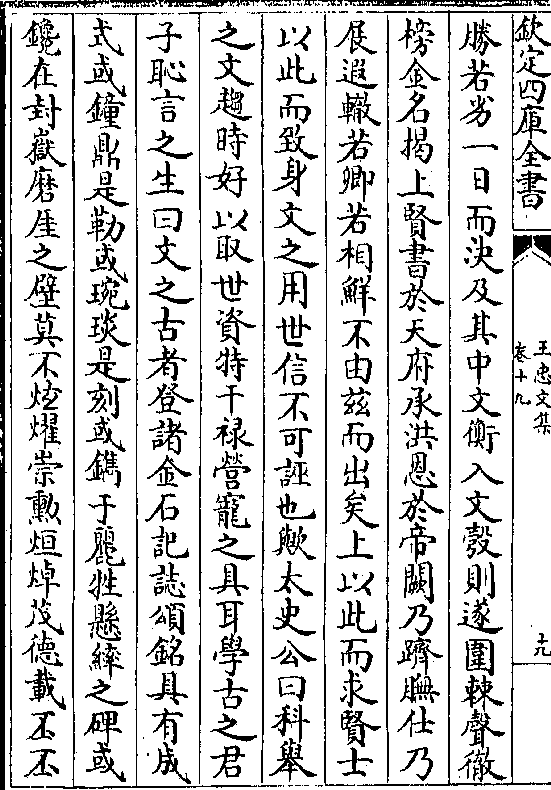 欽定四庫全書
王忠文集
卷十九
十九
勝若劣一日而決及其中文衡入文彀則遂圍棘聲徹
榜金名揭上賢書於天府承洪恩於帝闕乃躋膴仕乃
展遐轍若卿若相鮮不由兹而出矣上以此而求賢士
以此而致身文之用世信不可誣也歟太史公曰科舉
之文趨時好以取世資特干禄營寵之具耳學古之君
子恥言之生曰文之古者登諸金石記誌頌銘具有成
式或鐘鼎是勒或琬琰是刻或鐫于麗牲懸繂之碑或
鑱在封嶽磨厓之壁莫不炫燿崇勲烜焯茂德載丕丕